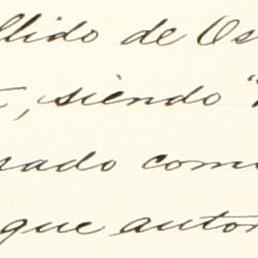 llido de Os
, siendo "
sado com
que autor